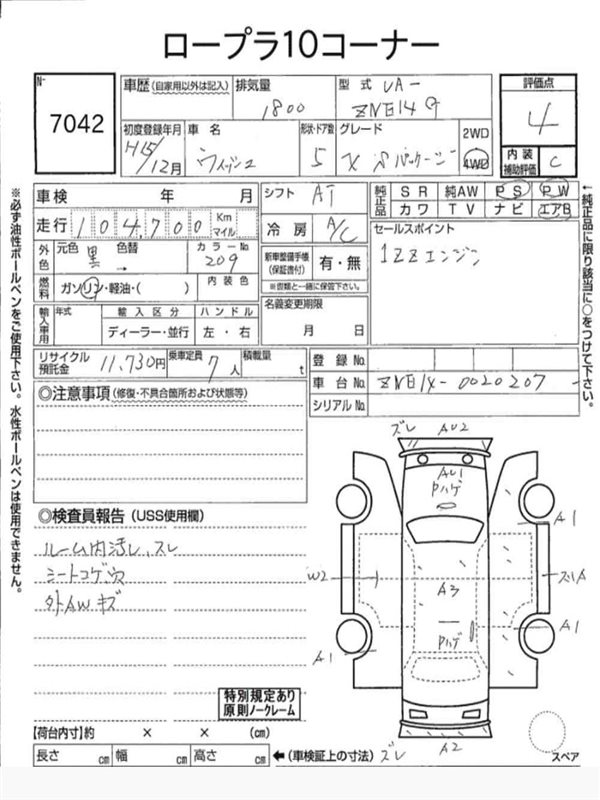 ロープラ10コーナー
N-
7042
車歴 (自家用以外は記入)
排気量
1800
型式 UA-
ZNE14G
評価点
4
初度登録年月
H15/12月
車名
ウィッシュ
形状・ドア数
5
グレード
X Sパッケージ
2WD
4WD
内装
補助評価
C
車検 年 月
シフト AT
純正品
SR 純AW PS PW
カワ TV ナビ エアB
走行 104,700 Km マイル
冷房 A/C
セールスポイント
1ZZエンジン
外色
元色 黒
色替 →
カラーNo
209
新車整備手帳
(保証書付)
有・無
※書類と一緒に保管下さい。
燃料 ガソリン・軽油・( )
内装色
輸入車用
年式
輸入区分
ディーラー・並行
ハンドル
左・右
名義変更期限
月 日
リサイクル
預託金
11,730円
乗車定員
7人
積載量
t
登録No.
車台No. ZNE14-0020207
シリアルNo.
◎注意事項 (修復・不具合箇所および状態等)
◎検査員報告 (USS使用欄)
ルーム内汚レ、スレ
シートコゲ穴
外AWキズ
特別規定あり
原則ノークレーム
【荷台内寸】約 × × (cm)
長さ cm 幅 cm 高さ cm
←(車検証上の寸法)
ズレ AU2
AU1
Pハゲ
A1
W2
A3
ズレA
Pハゲ
A1
A1
ズレ A2
スペア
※必ず油性ボールペンをご使用下さい。水性ボールペンは使用できません。
←純正品に限り該当に○をつけて下さい。